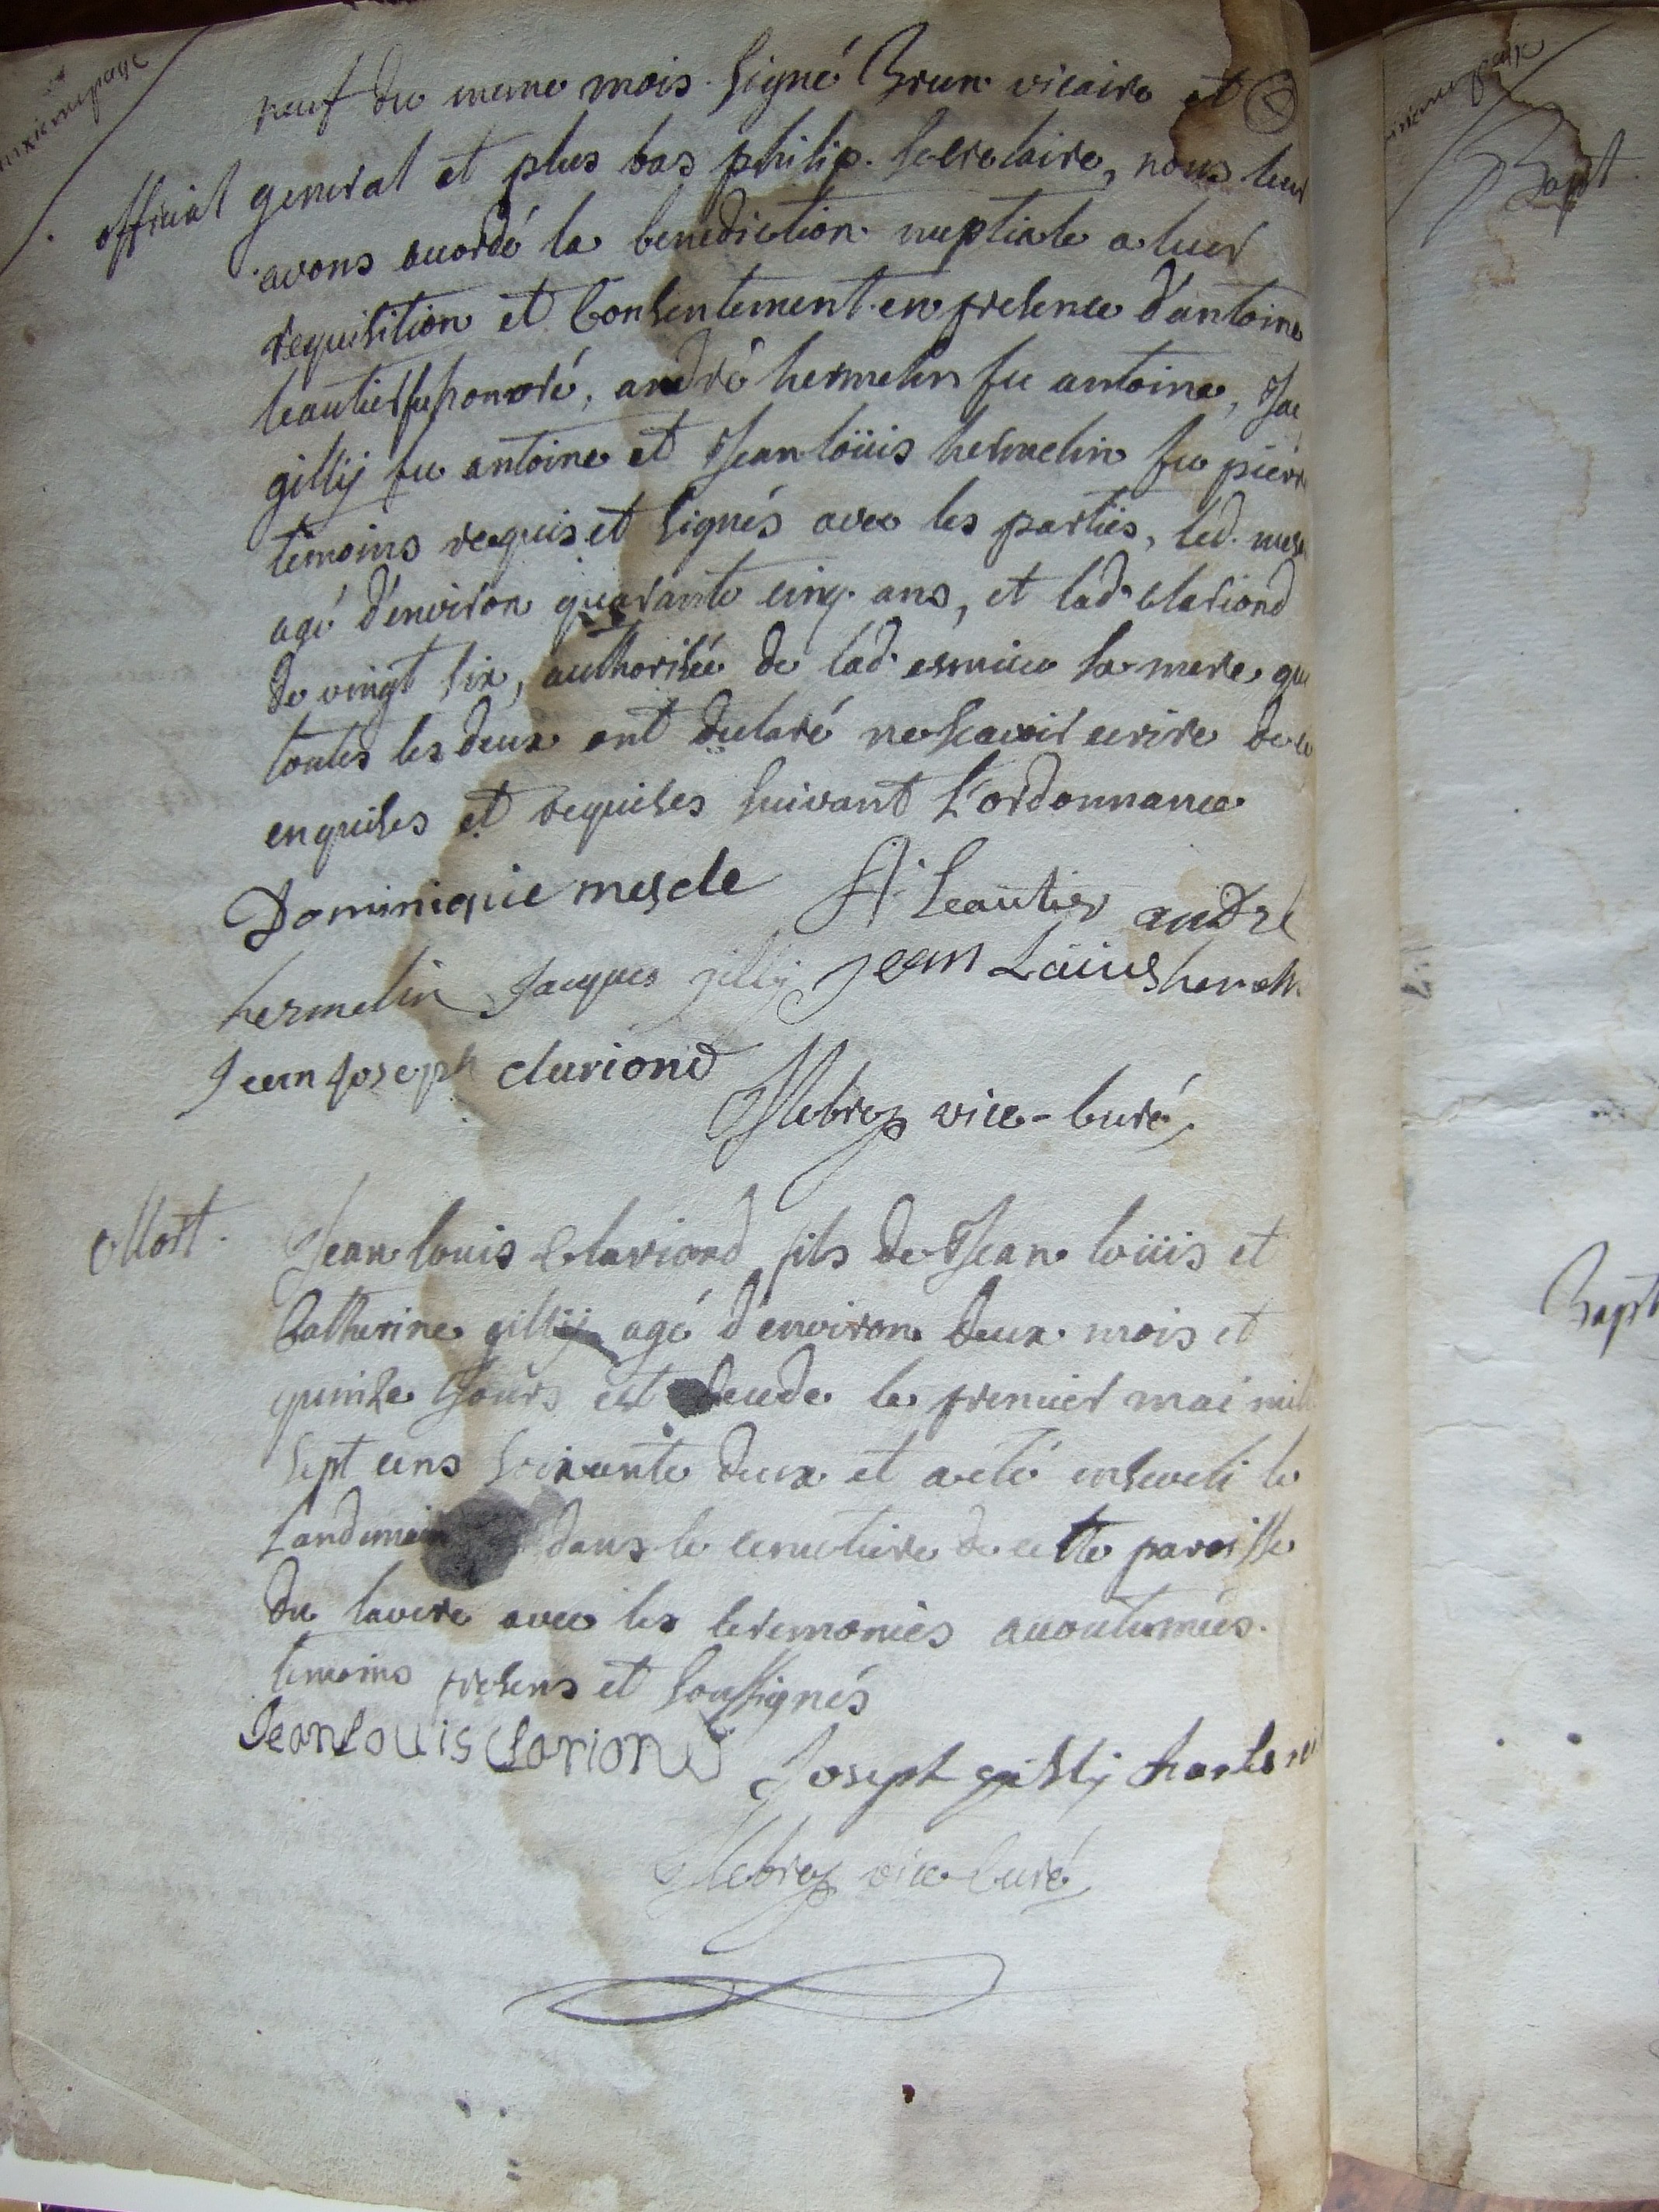 neuf du meme mois. signé Brun vicaire et
official general et plus bas philip. secretaire, nous leur
avons accordé la benediction nuptiale a luer
requisition et Consentement en presence d'antoine
leautier fu honoré, andré hermelin fu antoine, Jac
gillij fu antoine et Jean loüis hermelin fu pierre
temoins requis et signés avec les parties, led. mes
agé d'environ quarante cinq ans, et lad. Clariond
de vingt six, authorisée de lad. esmieu sa mere qui
toutes les deux ont declaré ne scavoir ecrire de ce
enquises et requises suivant L'ordonnance
Dominique mescle A. Leautier andré
hermelin Jacques gillij jean Loüis hermelin
Jean Joseph clariond
vice-Curé
Mort. Jean louis Clariond fils de Jean loüis et
Catherine gillij agé d'environ deux mois et
quinze Jours est decede le premier mai mil
sept cens soixante deux et a eté enseveli le
Landemain dans le cemetiere de cette paroisse
du lavere avec les Ceremonies accoutumées.
temoins presens et soussignés
Jean Louis Clariond Joseph gillij charles
vice-Curé
Bapt.
Bapt